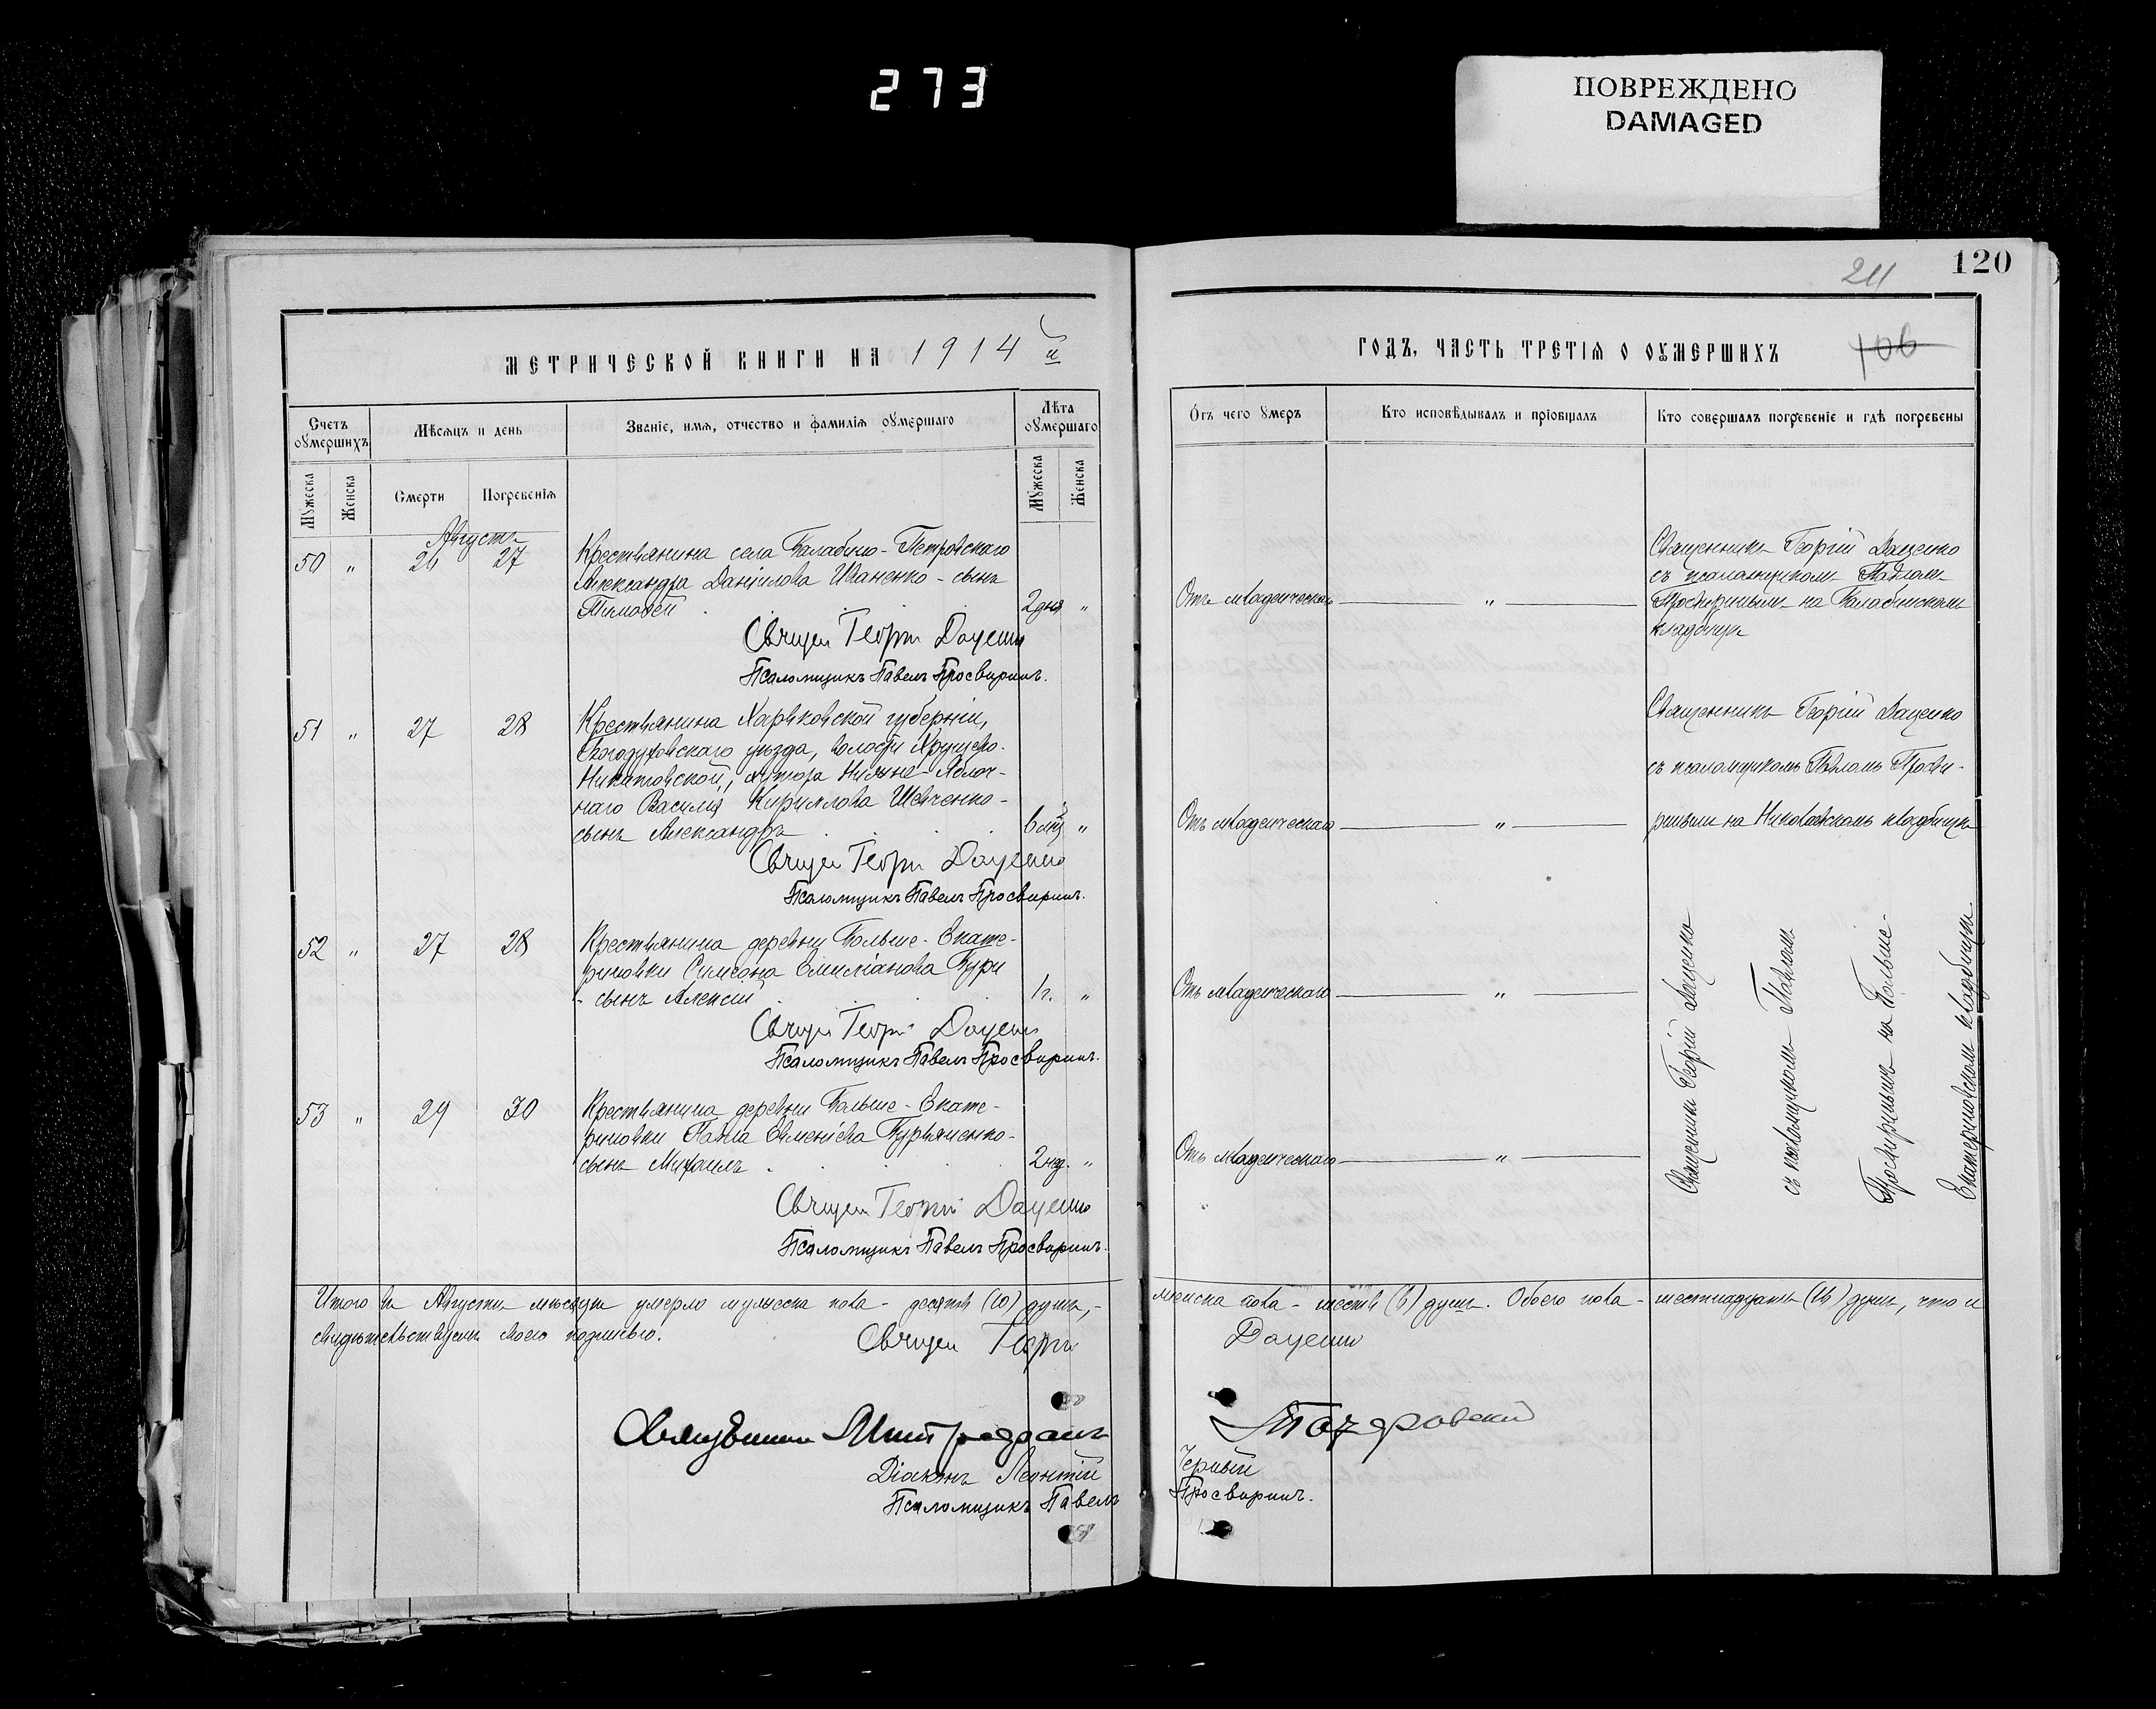 273
ПОВРЕЖДЕНО
DAMAGED
МЕТРИЧЕСКОЙ КНИГИ НА 1914 й
Счетъ оумершихъ
Мѣсяцъ и день
Званіе, имя, отчество и фамилія оумершаго
Лѣта оумершаго
Мужеска
Женска
Смерти
Погребенія
Мужеска
Женска
Августъ
50 " 27
Крестьянина села Балабино-Петровскаго
Александра Даніилова Иваненко - сынъ
Тимофей
2 дня "
Священ Георгій Даценко
Псаломщикъ Павелъ Просвиринъ.
51 " 27 28
Крестьянина Харьковской губерніи,
Богодуховскаго уѣзда, волости Хрущево-
Никитовской, хутора Нижне-Яблоч-
наго Василія Кириллова Шевченко -
сынъ Александръ
6 мц "
Священ Георгій Даценко
Псаломщикъ Павелъ Просвиринъ.
52 " 27 28
Крестьянина деревни Больше-Екате-
риновки Симеона Емиліанова
- сынъ Алексій
1 г. "
Священ Георгій Даценко
Псаломщикъ Павелъ Просвиринъ.
53 " 29 30
Крестьянина деревни Больше-Екате-
риновки Павла Бурьяненко -
сынъ Михаилъ
2 нд. "
Священ Георгій Даценко
Псаломщикъ Павелъ Просвиринъ.
Итого въ Августѣ мѣсяцѣ умерло мужеска пола - десять (10) душъ, -
свидѣтельствуемъ своею подписью.
Священ Георгій
Священникъ Митрофанъ
Діаконъ Леонтій
Псаломщикъ Павелъ
120
211
106
ГОДЪ, ЧАСТЬ ТРЕТІЯ О ОУМЕРШИХЪ
Отъ чего умеръ
Кто исповѣдывалъ и пріобщалъ
Кто совершалъ погребеніе и гдѣ погребены
Отъ младенческой "
Священникъ Георгій Даценко
съ псаломщикомъ Павломъ
Просвиринымъ на Балабинскомъ
кладбищѣ
Отъ младенческаго "
Священникъ Георгій Даценко
съ псаломщикомъ Павломъ Просви-
ринымъ на Николаевскомъ кладбищѣ
Отъ младенческаго "
Отъ младенческаго "
Священникъ Георгій Даценко
съ псаломщикомъ Павломъ
Просвиринымъ на Больше-
Екатериновскомъ кладбищѣ.
женска пола - шесть (6) душъ. Обоего пола - шестнадцать (16) душъ, что и
Даценко
Черный
Просвиринъ.